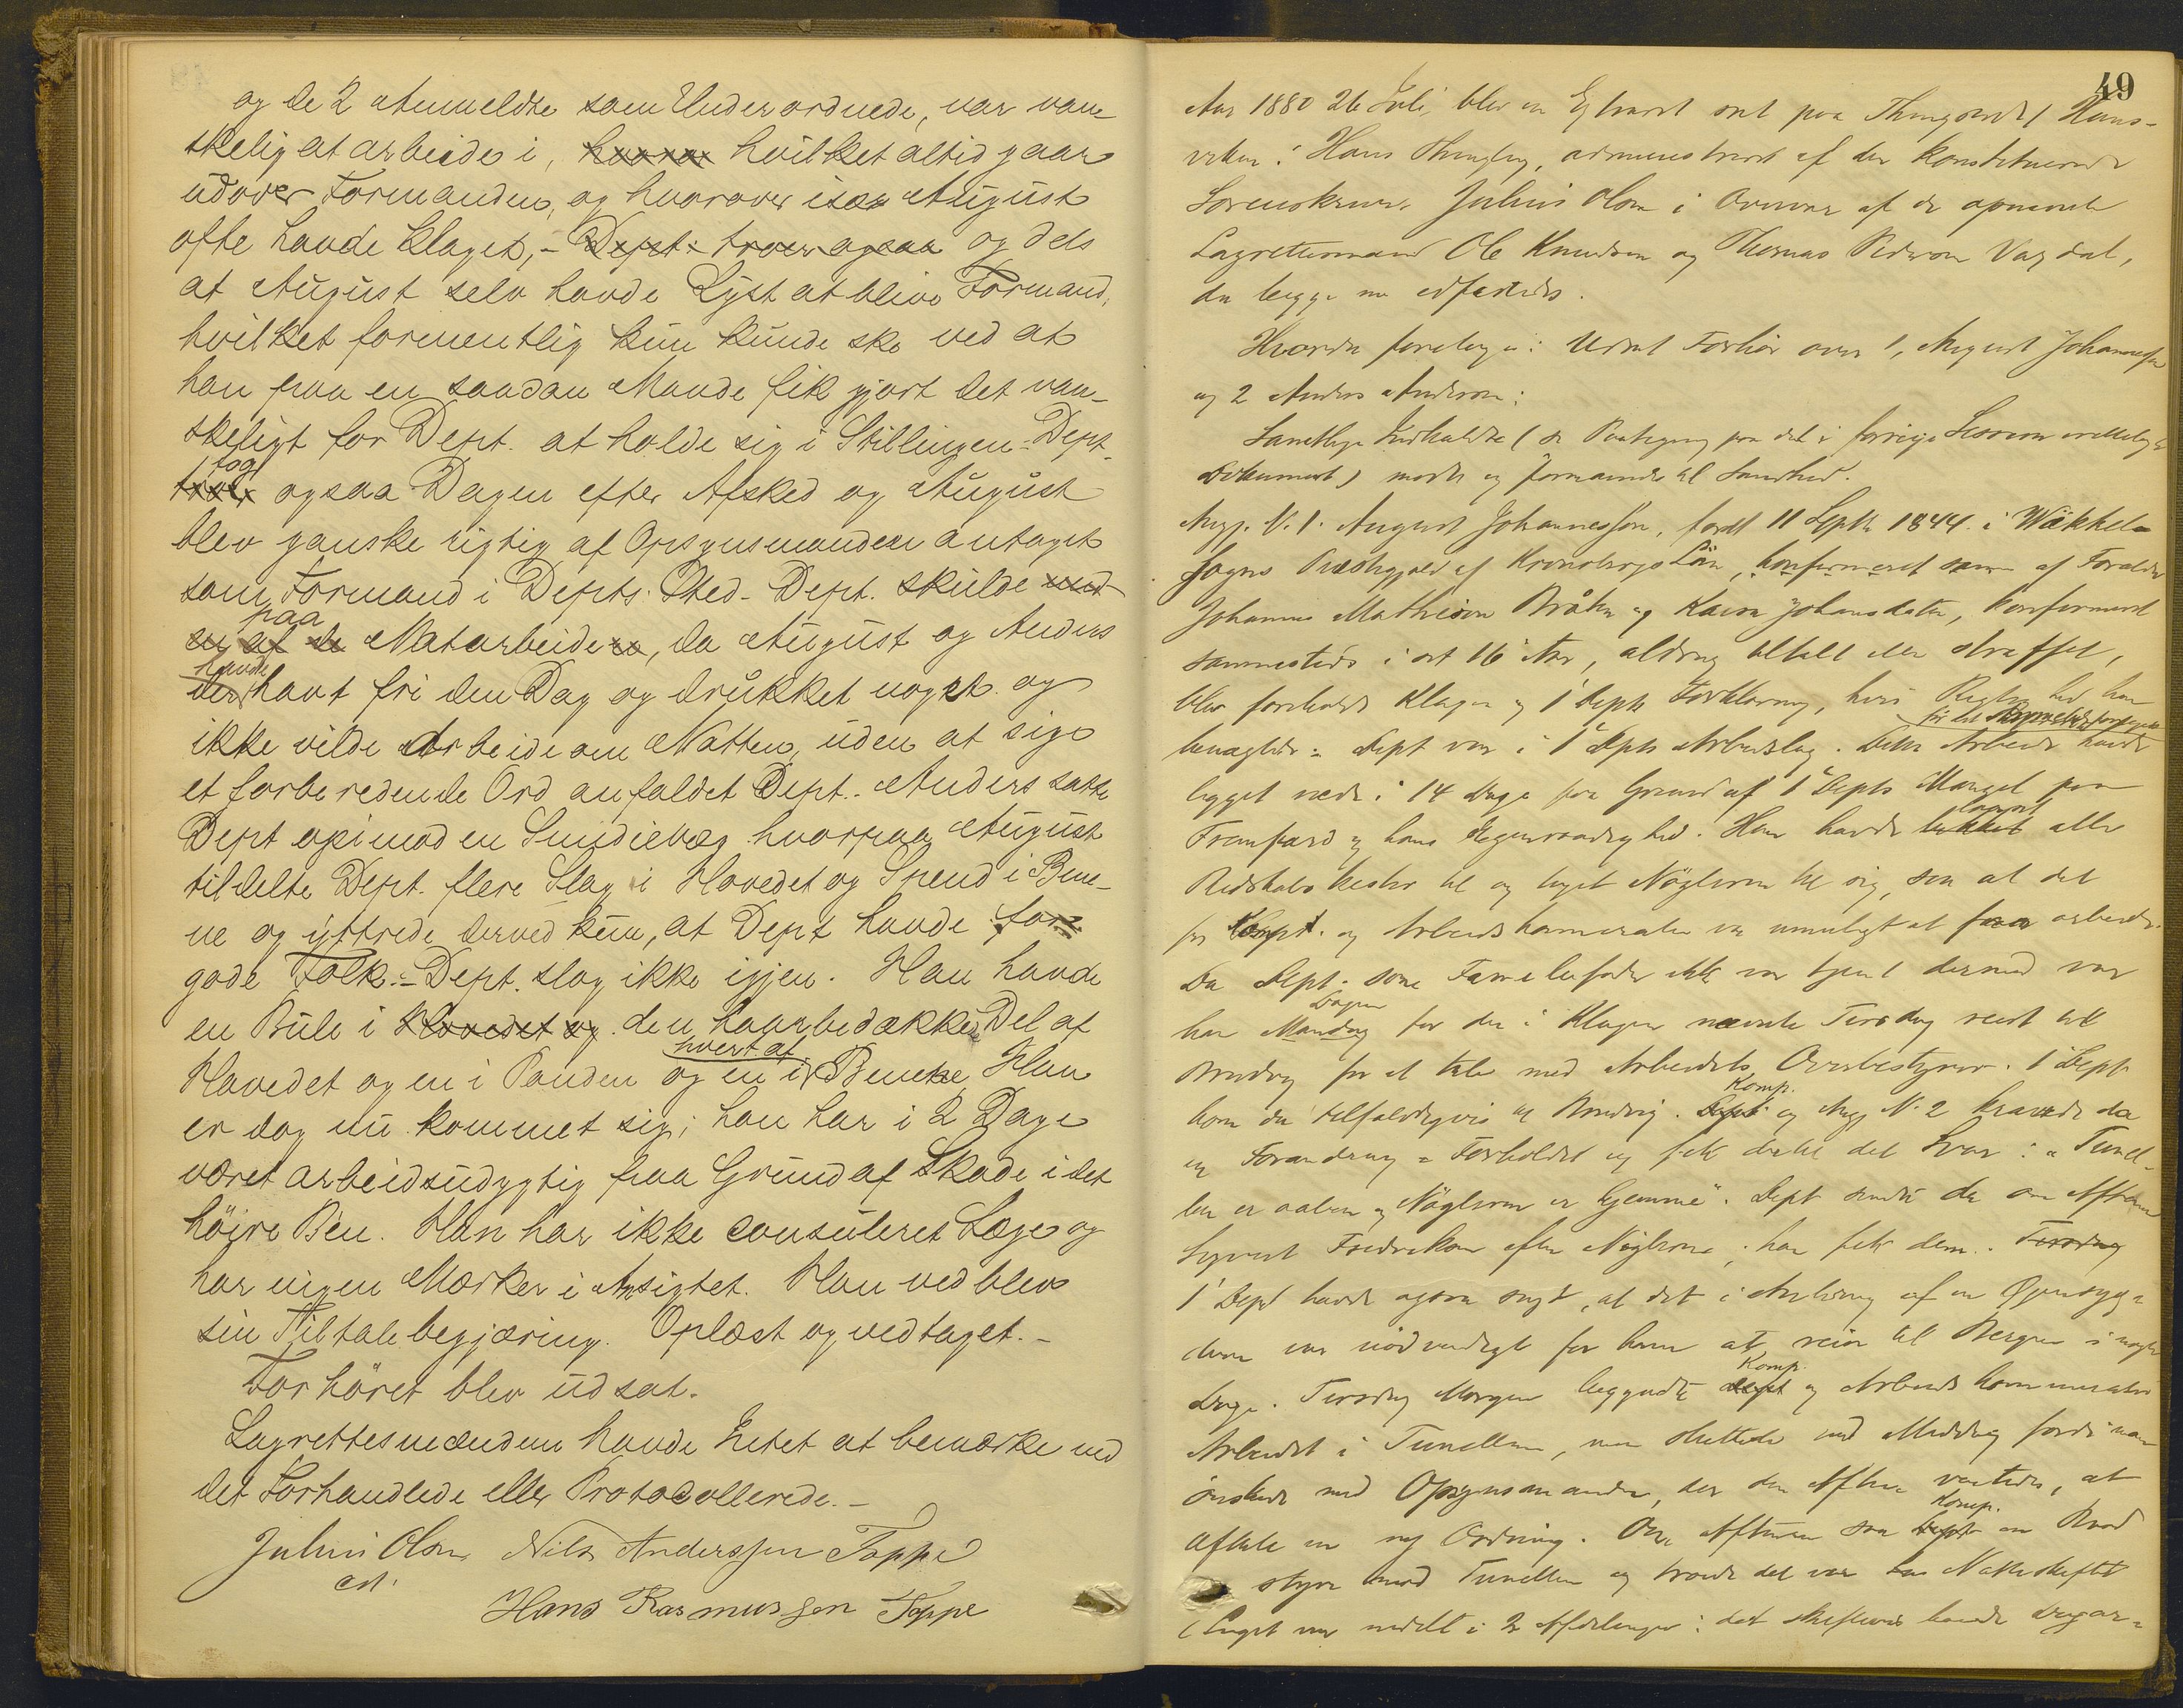 og de 2 Anmeldte som Underordnede, var van-
skelig at arbeide i, hvilket altid gaar
udover Formanden, og hvorover især August
ofte havde klaget, - Dept: troer ogsaa og dels
at August selv havde Lyst at blive Formand,
hvilket formentlig kun kunde ske ved at
han paa en saadan Maade fik gjort det van-
skeligt for Dept. at holde sig i Stillingen - Dept.
tog
ogsaa Dagen efter Afsked og August
blev ganske rigtig af Opsynsmanden antaget
som Formand i Depts. Sted - Dept. skulde
paa
en af de Natarbeidere, da August og Anders
havde
der havt fri den Dag og drukket noget og
ikke vilde Arbeide om Natten, uden at sige
et forberedende Ord anfaldet Dept. Anders satte
Dept op imod en Smidievæg hvorpaa August
tildelte Dept. flere Slag i Hovedet og Spend i Bene-
ne og yttrede derved kun, at Dept havde for
gode Folk. - Dept. slog ikke igjen. Han havde
en Bule i Hovedet og den haarbedækkede Del af
hvert af
Hovedet og en i Panden og en i Benene Han
er dog nu kommet sig; han har i 2 Dage
været arbeidsudygtig paa Grund af Skade i det
höire Ben. Han har ikke consuleret Læge og
har ingen Mærker i Ansigtet. Han vedblev
sin Tiltalebegjæring. Oplæst og vedtaget. -
Forhöret blev udsat.
Lagrettesmændene havde Intet at bemærke ved
det Forhandlede eller Protocollerede. -
Julius Olsen Nils Anderssen Toppe
cst.
Hans Rasmussen Toppe
49
Aar 1880 26 Juli blev en Extraret sat paa Thingstedet Hans-
viken i Hans Thinglag, administreret af den konstituerede
Sorenskriver Julius Olsen i Overvær af de opnævnte
Lagrettesmænd Ole Knudsen og Thomas Pederson Vagdal,
da begge nu edfæstedes.
Hvorda foretoges: Udsat Forhör over 1, August Johannesson
og 2 Anders Anderson:
Samtlige Indkaldte (se Paategning paa det i forrige Session irettelagte
Dokument) mödte og formanede til Sandhed.
Angj. N. 1. August Johannesson, födt 11 Septb 1844 i Wäkkels-
Sogns Præstegjeld af Kronobergs Län, konfirmeret samme af Forældre
Johannes Mathison Bråten og Kaisa Johansdatter, konfirmeret
sammesteds i sit 16 Aar, aldrig tiltalt eller straffet,
blev foreholdt Klagen og 1 Depts Forklaring, hvis Rigtighed han
benægtede: Dept var i 1 Depts Arbeidslag. Dette Arbeide havde
ligget nede i 14 Dage paa Grund af 1 Depts Mangel paa
laaset
Fremfærd og hans Egenraadighed. Han havde lukket alle
Redskabskister til og taget Nöglerne til sig, saa at det
for Komp. og Arbeidskamerater var umuligt at faa arbeide.
Da Dept. som Familiefader ikke var tjent dermed var
Dagen
han Mandag för den i Klagen nævnte Tirsdag reist til
Bradvig for at tale med Arbeidets Overbestyrer. 1 Dept
Komp.
kom da tilfældigvis til Bradvig. Dept. og Angj. N. 2 krævede da
en Forandring i Forholdet og fik dertil det Svar: "Tunel-
len er aaben og Nöglerne er hjemme". Dept sendte da om Aftenen
Sigvart Fredrikson efter Nöglerne, han fik dem. Tirsdag
1 Dept havde ogsaa sagt, at det i Anledning af en Öiensyg-
dom var nödvendigt for ham at reise til Bergen i nogle
Komp.
Dage. Tirsdag Morgen begyndte Dept og Arbeidskammerater
Arbeidet i Tunellen, men sluttede ved Middag fordi man
önskede med Opsynsmanden, der den Aften ventedes, at
Komp.
aftale en ny Ordning. Om Aftenen saa Dept en Baad
styre mod Tunellen og troede det var Natteskiftet
(Laget var inddelt i 2 Afdelinger: det Skifte havde Dagar-